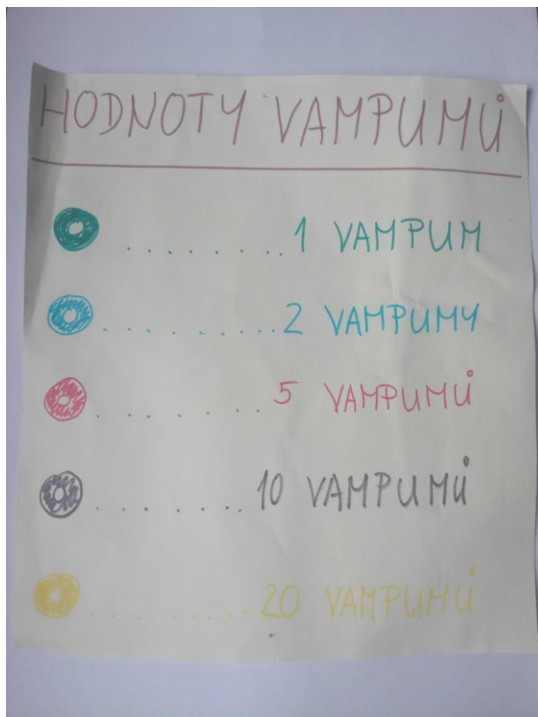 HODNOTY VAMPUMŮ
........1 VAMPUM
.........2 VAMPUMY
........5 VAMPUMŮ
........10 VAMPUMŮ
.........20 VAMPUMŮ